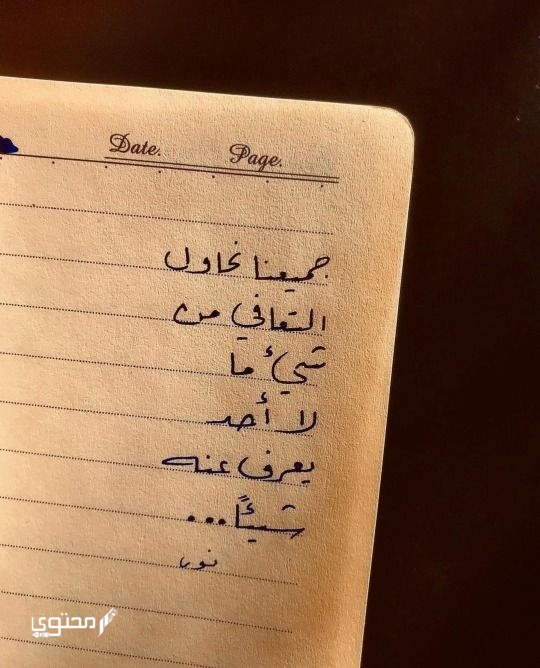 Date. Page.
جميعنا نحاول
التعافي من
شيئ ما
لا أحد
يعرف عنه
شيئاً...
نور
محتوى